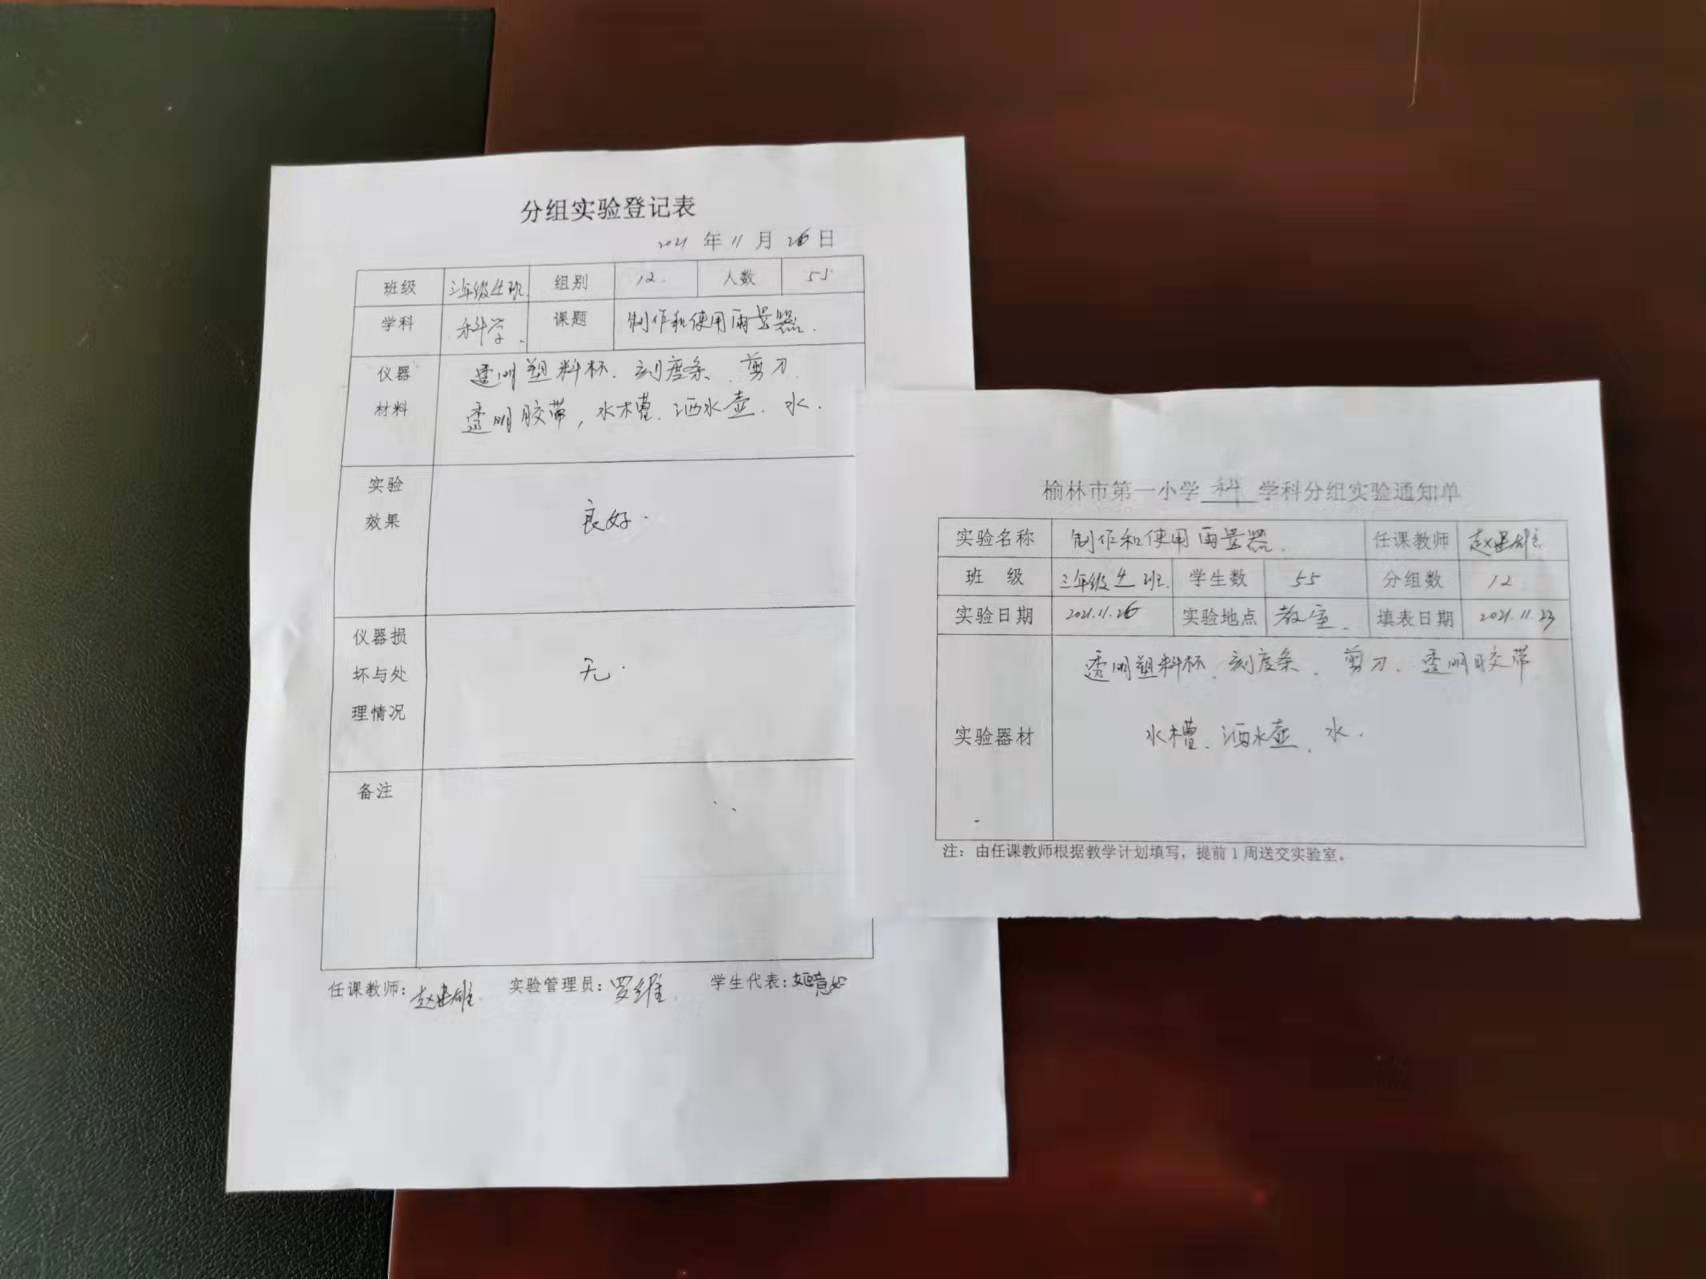 分组实验登记表
2021 年 11 月 26 日
班级 三年级4班 组别 12. 人数 55
学科 科学. 课题 制作和使用雨量器.
仪器 透明塑料杯、刻度条、剪刀.
材料 透明胶带,水槽.洒水壶.水.
实验
效果
良好.
仪器损
坏与处
理情况
无.
备注
任课教师: 赵建雄 实验管理员: 罗维. 学生代表:
榆林市第一小学 科 学科分组实验通知单
实验名称 制作和使用雨量器. 任课教师 赵建雄
班 级 三年级4班. 学生数 55 分组数 12
实验日期 2021.11.26 实验地点 教室. 填表日期 2021.11.23
透明塑料杯、刻度条、剪刀.透明胶带
实验器材 水槽、洒水壶、水.
注：由任课教师根据教学计划填写，提前1周送交实验室。